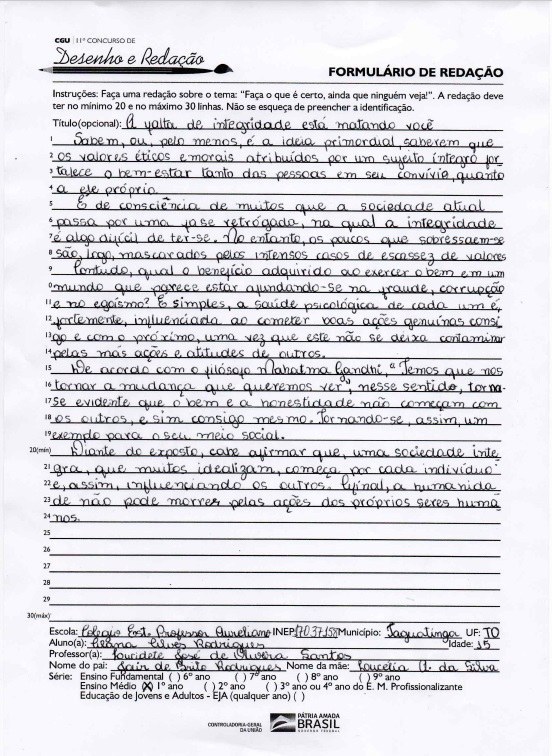 CGU | 11º CONCURSO DE
Desenho e Redação
FORMULÁRIO DE REDAÇÃO
Instruções: Faça uma redação sobre o tema: "Faça o que é certo, ainda que ninguém veja!". A redação deve
ter no mínimo 20 e no máximo 30 linhas. Não se esqueça de preencher a identificação.
Título(opcional): A falta de integridade está matando você
1 Sabem, ou, pelo menos, é a ideia primordial, saberem que
2 os valores éticos e morais atribuídos por um sujeito íntegro for
3 talece o bem-estar tanto das pessoas em seu convívio, quanto
4 a ele próprio.
5 É de consciência de muitos que a sociedade atual
6 passa por uma fase retrógada, na qual a integridade
7 é algo difícil de ter-se. No entanto, os poucos que sobressaem-se
8 são, logo, mascarados pelos intensos casos de escassez de valores
9 Contudo, qual o benefício adquirido ao exercer o bem em um
10 mundo que parece estar afundando-se na fraude, corrupção
11 e no egoísmo? É simples, a saúde psicológica de cada um é,
12 fortemente, influenciada ao cometer boas ações genuínas consi
13 go e com o próximo, uma vez que este não se deixa contaminar
14 pelas más ações e atitudes de outros.
15 De acordo com o filósofo Mahatma Gandhi, "Temos que nos
16 tornar a mudança que queremos ver", nesse sentido, torna-
17 se evidente que o bem e a honestidade não começam com
18 os outros, e sim consigo mesmo. Tornando-se, assim, um
19 exemplo para o seu meio social.
20(min) Diante do exposto, cabe afirmar que, uma sociedade ínte
21 gra, que muitos idealizam, começa por cada indivíduo
22 e, assim, influenciando os outros. Afinal, a humanida
23 de não pode morrer pelas ações dos próprios seres huma
24 nos.
25
26
27
28
29
30(máx)
Escola: Colégio Est. Professor Aureliano INEP 17037158 Município: Taguatinga UF: TO
Aluno(a): Silva Rodrigues Idade: 15
Professor(a): Louridete José de Oliveira Santos
Nome do pai: Jair de Brito Rodrigues Nome da mãe: Loucelia A. da Silva
Série: Ensino Fundamental ( ) 6º ano ( ) 7º ano ( ) 8º ano ( ) 9º ano
Ensino Médio (X) 1º ano ( ) 2º ano ( ) 3º ano ou 4º ano do E. M. Profissionalizante
Educação de Jovens e Adultos - EJA (qualquer ano) ( )
CONTROLADORIA-GERAL
DA UNIÃO
PÁTRIA AMADA
BRASIL
GOVERNO FEDERAL